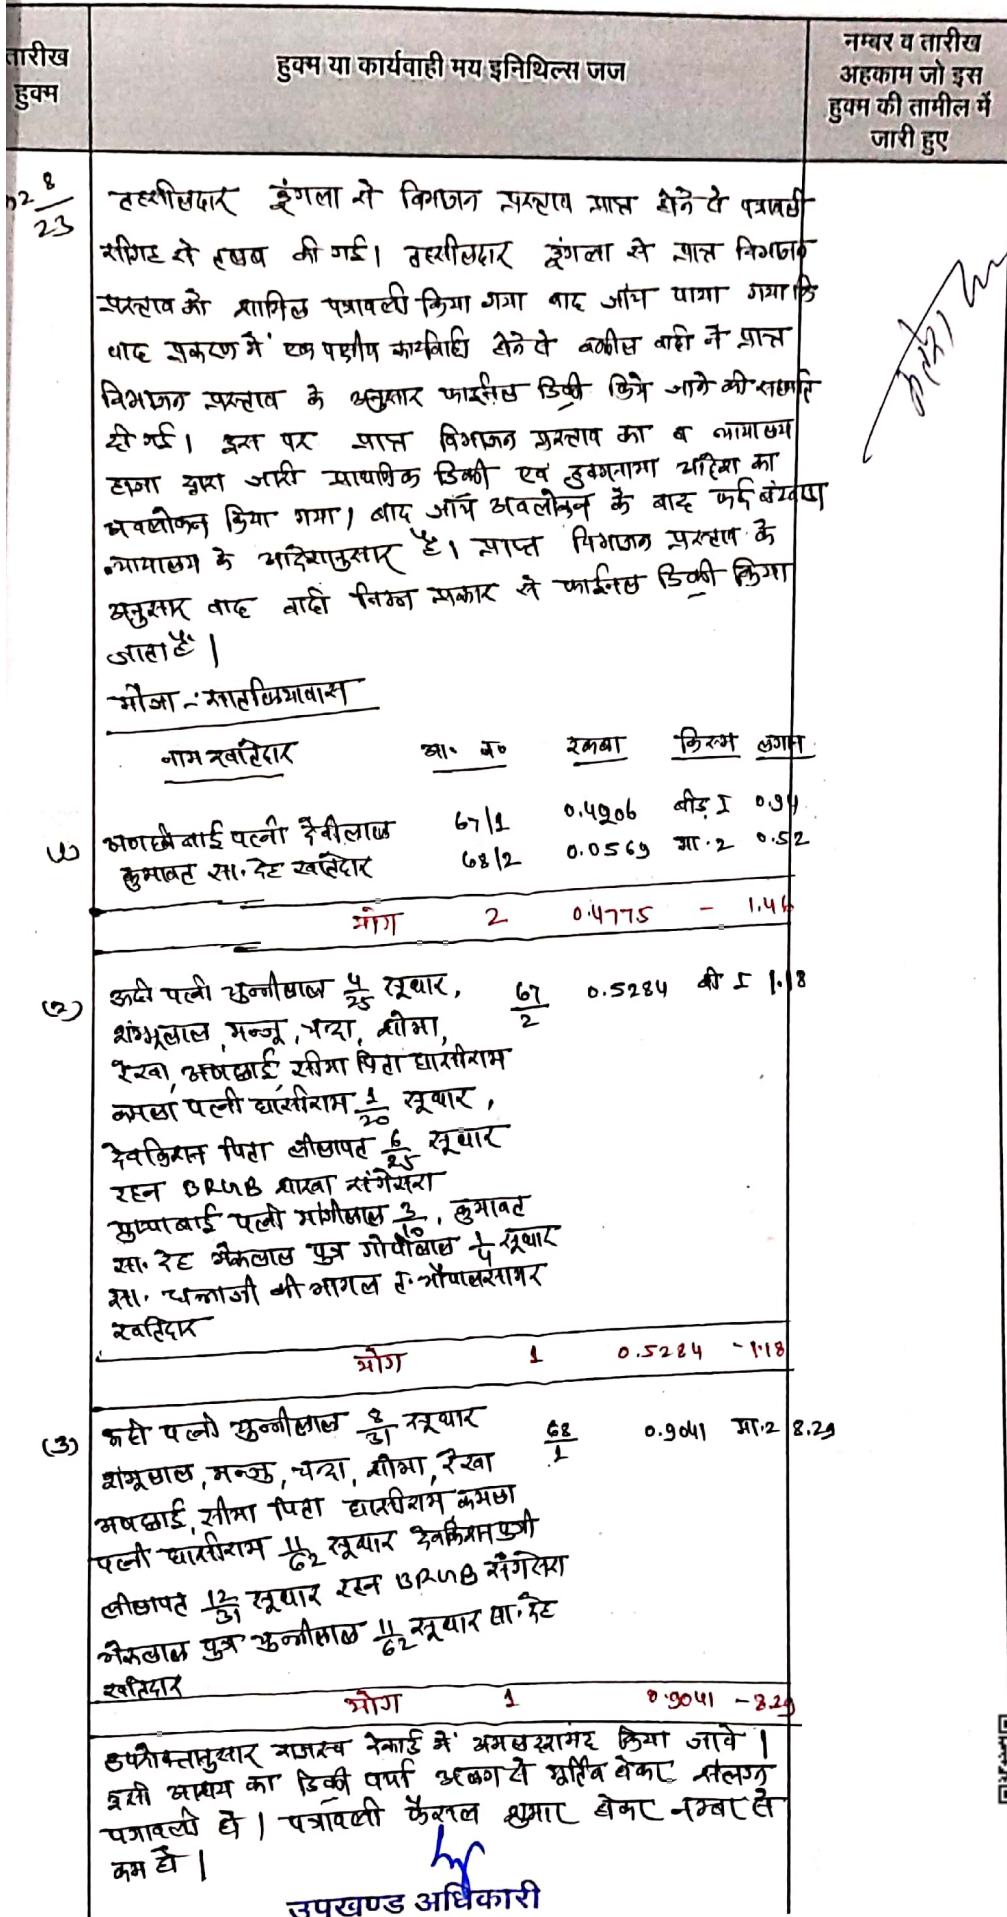 तारीख
हुक्म
हुक्म या कार्यवाही मय इनिथिल्स जज
नम्बर व तारीख
अहकाम जो इस
हुक्म की तामील में
जारी हुए
2 8/23
तहसीलदार डूंगला से विभाजन प्रस्ताव प्राप्त होने से पत्रावली
सीगह से तलब की गई। तहसीलदार डूंगला से प्राप्त विभाजन
प्रस्ताव को शामिल पत्रावली किया गया बाद जांच पाया गया कि
वाद प्रकरण में एक पक्षीय कार्यवाही होने से वकील वादी ने प्राप्त
विभाजन प्रस्ताव के अनुसार फाईनल डिक्री किये जाने की सहमति
दी गई। इस पर प्राप्त विभाजन प्रस्ताव का व न्यायालय
हाजा द्वारा जारी प्राथमिक डिक्री एवं हुक्मनामा आदेश का
अवलोकन किया गया। बाद जाँच अवलोकन के बाद
न्यायालय के आदेशानुसार है। प्राप्त विभाजन प्रस्ताव के
अनुसार वाद वादी निम्न प्रकार से फाईनल डिक्री किया
जाता है।
मौजा :- सालकियावास
नाम खातेदार आ. न. रकबा किस्म लगान
(1) बाई पत्नी देवीलाल 67/1 0.4206 बीड़ I 0.94
कुमावत सा. देह खातेदार 68/2 0.0569 मा.2 0.52
योग 2 0.4775 - 1.46
(2) पत्नी चुन्नीलाल 4/25 सूथार, 67/2 0.5284 बी I 1.18
शम्भूलाल, मन्जू, चन्दा, शोभा,
रेखा, अणछाई, सीमा पिता घासीराम
कमला पत्नी घासीराम 1/20 सूथार,
देवकिशन पिता लीलापत 6/25 सूथार
रहन BRGB शाखा संगेसरा
पुष्पाबाई पत्नी मांगीलाल 3/10, कुमावत
सा. देह भैरूलाल पुत्र गोपीलाल 1/4 सूथार
सा. की भागल त. भोपालसागर
खातेदार
योग 1 0.5284 - 1.18
(3) पत्नी चुन्नीलाल 8/31 सूथार 68/1 0.9041 मा.2 8.29
शंभूलाल, मन्जु, चन्दा, शोभा, रेखा
अणछाई, सीमा पिता घासीराम, कमला
पत्नी घासीराम 11/62 सूथार देवकिशन पुत्री
लीलापत 12/31 सूथार रहन BRGB संगेसरा
भैरूलाल पुत्र चुन्नीलाल 11/62 सूथार सा. देह
खातेदार
योग 1 0.9041 - 8.29
उपरोक्तानुसार राजस्व रेकार्ड में अमल दरामद किया जावे।
इसी आशय का डिक्री पर्चा अलग से मूर्तिब होकर संलग्न
पत्रावली हो। पत्रावली फैसल शुमार होकर नम्बर से
कम हो।
उपखण्ड अधिकारी